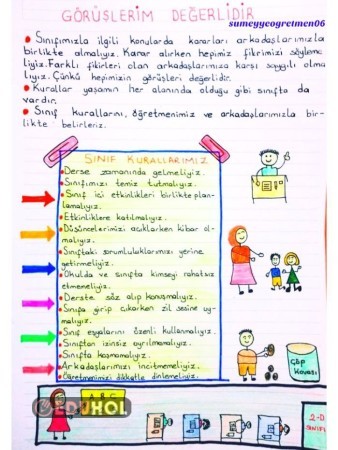 GÖRÜŞLERİM DEĞERLİDİR
sumeyyeogretmen06
Sınıfımızla ilgili konularda kararları arkadaşlarımızla
birlikte almalıyız. Karar alırken hepimiz fikrimizi söyleme
liyiz. Farklı fikirleri olan arkadaşlarımıza karşı saygılı olma
lıyız. Çünkü hepimizin görüşleri değerlidir.
Kurallar yaşamın her alanında olduğu gibi sınıfta da
vardır.
Sınıf kurallarını, öğretmenimiz ve arkadaşlarımızla bir-
likte belirleriz.
SINIF KURALLARIMIZ
Derse zamanında gelmeliyiz.
Sınıfımızı temiz tutmalıyız.
Sınıf içi etkinlikleri birlikte plan-
lamalıyız.
Etkinliklere katılmalıyız.
Düşüncelerimizi açıklarken kibar ol-
malıyız.
Sınıftaki sorumluluklarımızı yerine
getirmeliyiz.
Okulda ve sınıfta kimseyi rahatsız
etmemeliyiz.
Derste söz alıp konuşmalıyız.
Sınıfa girip çıkarken zil sesine uy-
malıyız.
Sınıf eşyalarını özenli kullanmalıyız.
Sınıftan izinsiz ayrılmamalıyız.
Sınıfta koşmamalıyız.
Arkadaşlarımızı incitmemeliyiz.
Öğretmenimizi dikkatle dinlemeliyiz.
Çöp
Kovası
EDUHOL
ABC
2-D
SINIFI